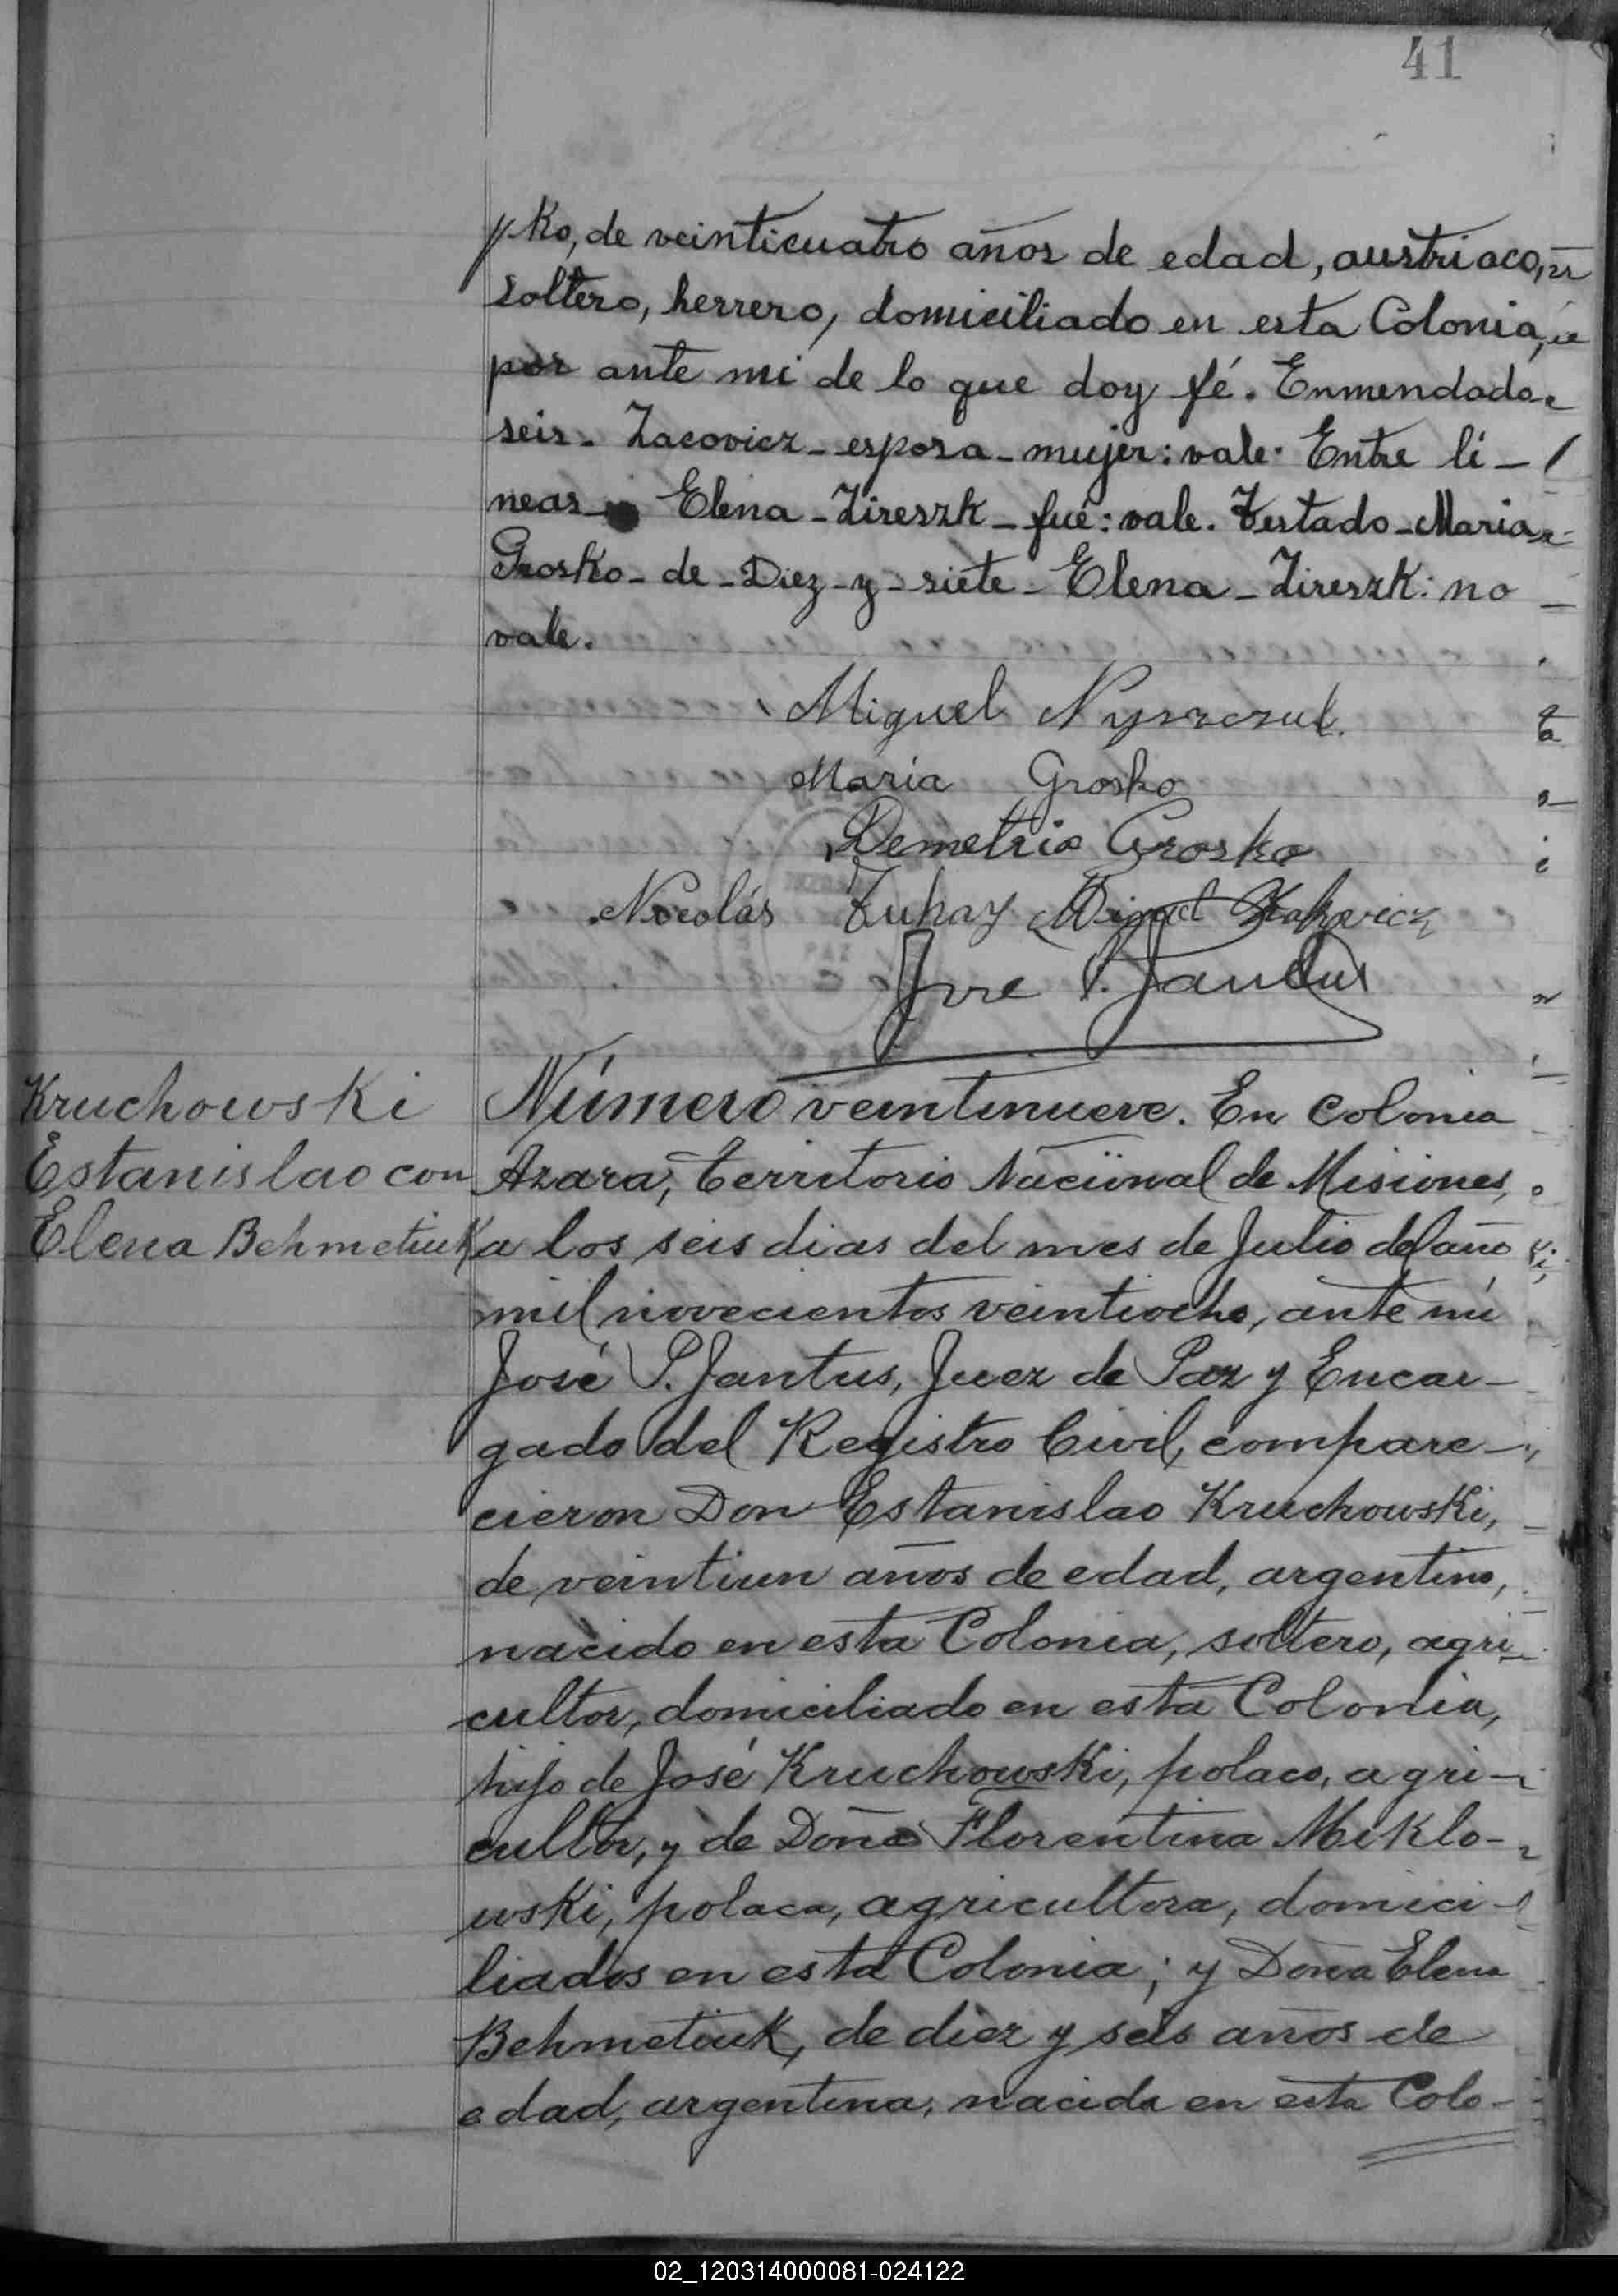 41
ko, de veinticuatro años de edad, austriaco,
soltero, herrero, domiciliado en esta Colonia,
por ante mi de lo que doy fé. Enmendado
seis - Zacovicz - esposa - mujer: vale. Entre lí-
neas Elena - Zireszk - fué: vale. Testado - Maria
Grosko - de - Diez - y - siete - Elena - Zireszk: no
vale.
Miguel Nyszczuk.
Maria Grosko
Demetrio Grosko
Nicolás Tuhay Miguel Zakovicz
José P. Jantus
Kruchowski
Estanislao con
Elena Behmetiuk
Número veintinueve. En Colonia
Azara, Territorio Nacional de Misiones,
a los seis dias del mes de Julio del año
mil novecientos veintiocho, ante mí
José P. Jantus, Juez de Paz y Encar-
gado del Registro Civil, compare-
cieron Don Estanislao Kruchowski,
de veintiun años de edad, argentino,
nacido en esta Colonia, soltero, agri-
cultor, domiciliado en esta Colonia,
hijo de José Kruchowski, polaco, agri-
cultor, y de Doña Florentina Miklo-
wski, polaca, agricultora, domici-
liados en esta Colonia; y Doña Elena
Behmetiuk, de diez y seis años de
edad, argentina, nacida en esta Colo-
02_120314000081-024122